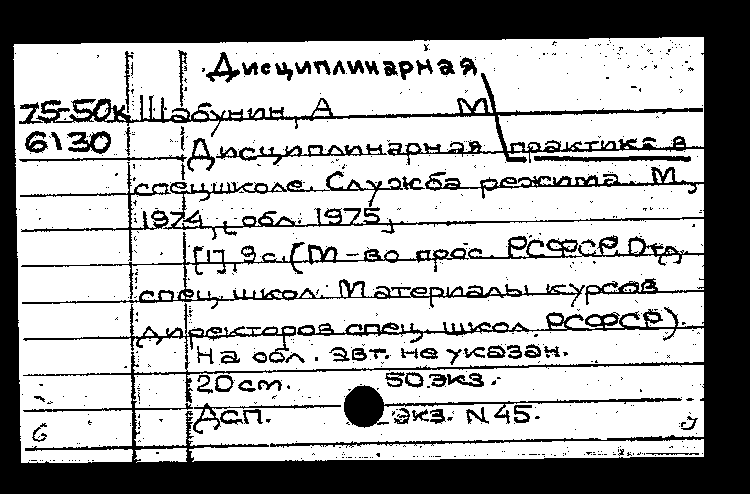 Дисциплинарная
75-50к Шабунин, А М
6130 Дисциплинарная практика в
спецшколе. Служба режима. М.,
1974, [обл. 1975].
[1], 9 с. (М-во прос. РСФСР. Отд.
спец. школ. Материалы курсов
директоров спец. школ РСФСР).
На обл. авт. не указан.
20 см. 50 экз.
Дсп. экз. N 45.
6